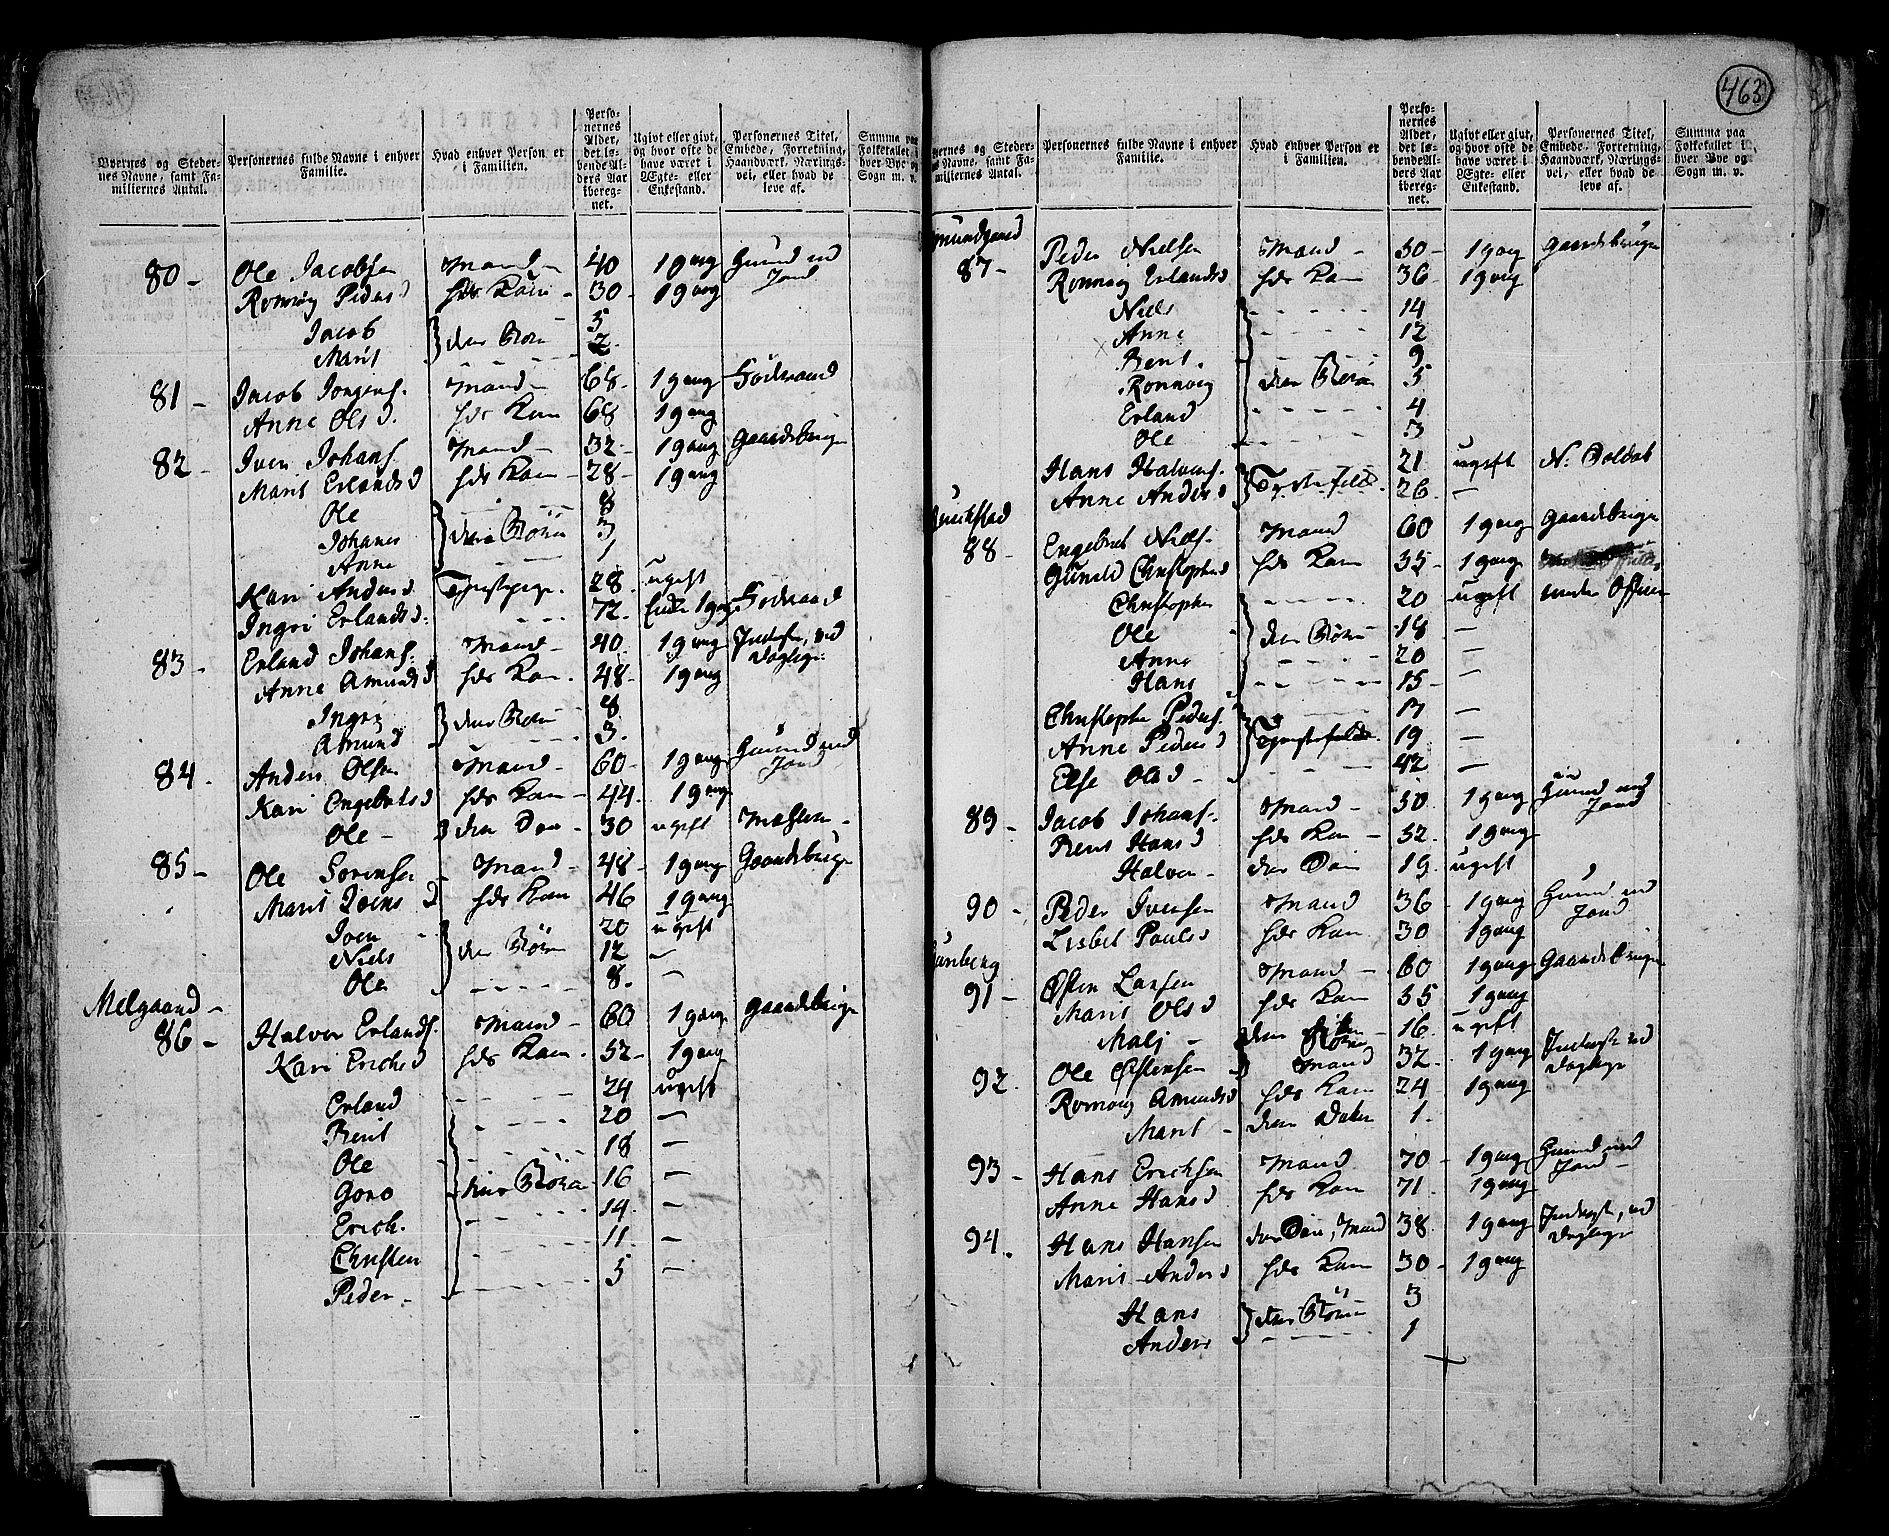 463
Byernes og Steder-
nes Navne, samt Fa-
miliernes Antal.
Personernes fulde Navne i enhver
Familie.
Hvad enhver Person er
i Familien.
Perso-
nernes
Alder,
det lø-
bende Al-
ders Aar
iberegnet.
Ugivt eller givt,
og hvor ofte de
have været i
Ægte- eller
Enkestand.
Personernes Titel,
Embede, Forretning,
Haandværk, Nærings-
vei, eller hvad de
leve af.
Summa paa
Folketallet i
hver Bye og
Sogn m. v.
80 - Ole Jacobsen Mand - 40 1 gang Huusmd md
Jord
Ronnøg Peders d hds Kone - 30 - 1 gang
Jacob 5
Marit deres Børn 2
81 - Jacob Jørgens. Mand - 68 - 1 gang Føderaad
Anne Ols d. hds Kone 68 1 gang
82 - Iver Johans. Mand - 32 - 1 gang Gaardsbruger
Marit Erlands d hds Kone - 28 - 1 gang
Ole 8
Johanes deres Børn 3
Anne 1
Kari Anders d Tjenstepige. 28. ugift
Ingri Erlands d. 72. Enke 1 gang Føderaad
83 - Erland Johans. Mand - 40. 1 gang Inderst, ved
Dagleje
Anne Amunds d hds Kone. 48 - 1 gang
Ingri deres Børn 8
Amund 3.
84 - Anders Olsen Mand - 60 - 1 gang Huusmd md
Jord
Kari Engebrets d hds Kone - 44. 1 gang
Ole - deres Søn - 30 ugift
85 - Ole Sørensen - Mand - 48 - 1 gang Gaardsbruger
Marit Ivers d hds Kone 46 1 gang
Iver 20 ugift
Niels deres Børn 12 -
Ole 8. -
Melgaard -
86 - Halvor Erlands. Mand - 60 1 gang Gaardsbruger
Kari Erichs d hds Kone. 52 - 1 gang
Erland 24 ugift
Berit 20 -
Ole 18 -
Goro deres Børn 16 -
Erich. 14 -
Christen 11 -
Peder - 5 -
Byernes og Steder-
nes Navne, samt Fa-
miliernes Antal.
Personernes fulde Navne i enhver
Familie.
Hvad enhver Person er
i Familien.
Perso-
nernes
Alder,
det lø-
bende Al-
ders Aar
iberegnet.
Ugivt eller givt,
og hvor ofte de
have været i
Ægte- eller
Enkestand.
Personernes Titel,
Embede, Forretning,
Haandværk, Nærings-
vei, eller hvad de
leve af.
Summa paa
Folketallet i
hver Bye og
Sogn m. v.
mundgaard
87 - Peder Nielsen Mand - 50 - 1 gang Gaardsbruger
Ronnøg Erlands d hds Kone 36 - 1 gang
Niels 14
Anne 12
Berit. 9
Ronnøg deres Børn 5
Erland 4
Ole 3
Hans Halvors. 21 ugift N: Soldat
Anne Anders d Tjenstefolk. 26 -
88 - Engebret Niels. Mand 60 1 gang Gaardsbruger
Gunild Christophers d hds Kone 55 - 1 gang
Christopher 20 ugift
Ole deres Børn 18 -
Anne 20 -
Hans 15 - -
Christopher Peders. 17 -
Anne Peders d Tjenstefolk 19 -
Else Ols d - 42 -
89 - Jacob Johans. Mand - 50. 1 gang Huusmd md
Jord
Berit Hans d hds Kone - 52. 1 gang
Halvor - deres Søn 19. ugift
90 - Peder Iversen Mand 36 - 1 gang Huusmd md
Jord
Lisbet Pouls d hds Kone 30 1 gang
91 - Østen Larsen Mand - 60 1 gang Gaardsbruger
Marit Ols d hds Kone 55 1 gang
Malj - deres 16. ugift
92. Ole Østensen Mand 32 - 1 gang Inderst ved
Dagleje
Ronnøg Amunds d hds Kone 24 1 gang
Marit - deres Dater 1.
93 - Hans Erichsen Mand 70 - 1 gang Huusmd md
Jord -
Anne Hans d hds Kone 71. 1 gang
94. Hans Hansen deres Søn, Mand 38. 1 gang Inderst, ved
Dagleje
Marit Anders d hds Kone 30 - 1 gang
Hans deres Børn 3
Anders 1